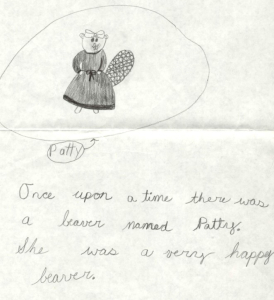 Patty
Once upon a time there was
a beaver named Patty.
She was a very happy
beaver.